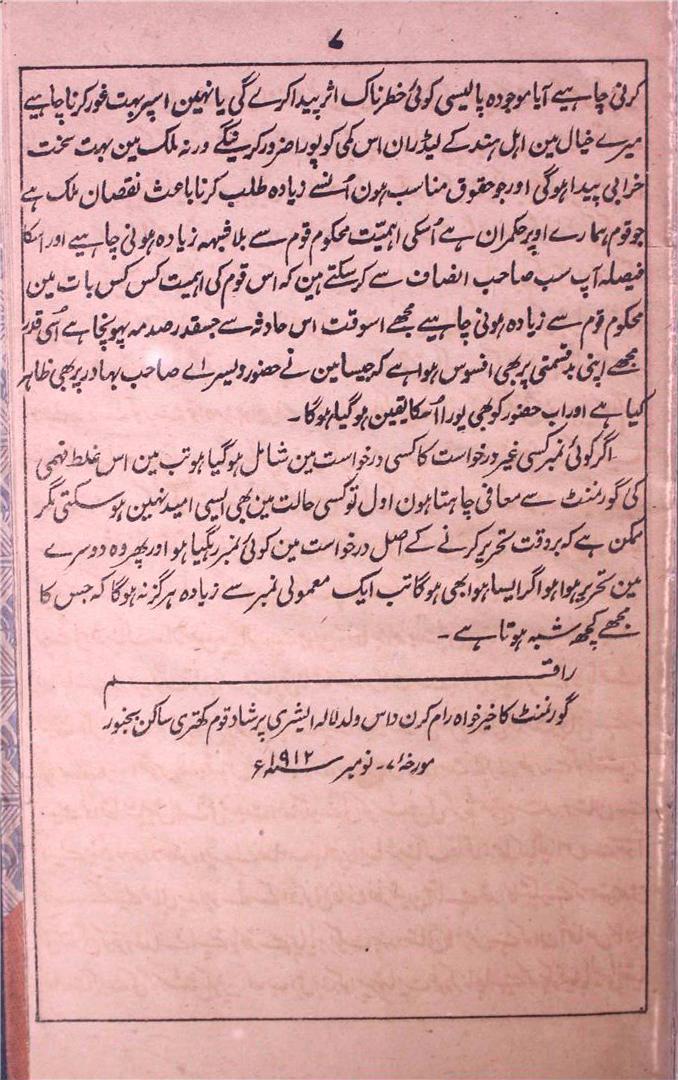 ۷
کرنی چاہیے آیا موجودہ پالیسی کوئی خطرناک اثر پیدا کرے گی یا نہین اسپر بہت غور کرنا چاہیے
میرے خیال مین اہل ہند کے لیڈران اس کمی کو پورا ضرور کرینگے ورنہ ملک مین بہت سخت
خرابی پیدا ہوگی اور جو حقوق مناسب ہون اُنسے زیادہ طلب کرنا باعث نقصان ملک ہے
جو قوم ہمارے اوپر حکمران ہے اُسکی اہمیّت محکوم قوم سے بلا شبہہ زیادہ ہونی چاہیے اور اسکا
فیصلہ آپ سب صاحب انصاف سے کر سکتے ہین کہ اس قوم کی اہمیت کس کس بات مین
محکوم قوم سے زیادہ ہونی چاہیے مجھے اسوقت اس حادثہ سے جسقدر صدمہ پہونچا ہے اُسی قدر
مجھے اپنی بدقسمتی پر بھی افسوس ہوا ہے کہ جیسا مین نے حضور ویسراے صاحب بہادر پر بھی ظاہر
کیا ہے اور اب حضور کو بھی پورا اُسکا یقین ہو گیا ہوگا۔
اگر کوئی نمبر کسی غیر درخواست کا کسی درخواست مین شامل ہو گیا ہو تب مین اس غلط فہمی
کی گورنمنٹ سے معافی چاہتا ہون اول تو کسی حالت مین بھی ایسی امید نہین ہو سکتی مگر
ممکن ہے کہ بروقت تحریر کرنے کے اصل درخواست مین کوئی نمبر رہگیا ہو اور پھر وہ دوسرے
مین تحریر ہوا ہو اگر ایسا ہوا بھی ہوگا تب ایک معمولی نمبر سے زیادہ ہرگز نہ ہوگا کہ جس کا
مجھے کچھ شبہ ہوتا ہے۔
راقم
گورنمنٹ کا خیرخواہ رام کرن داس ولد لالہ ایشری پرشاد قوم کھتری ساکن بجنور
مورخہ ۷۱۔ نومبر سنہ ۱۹۱۲ء